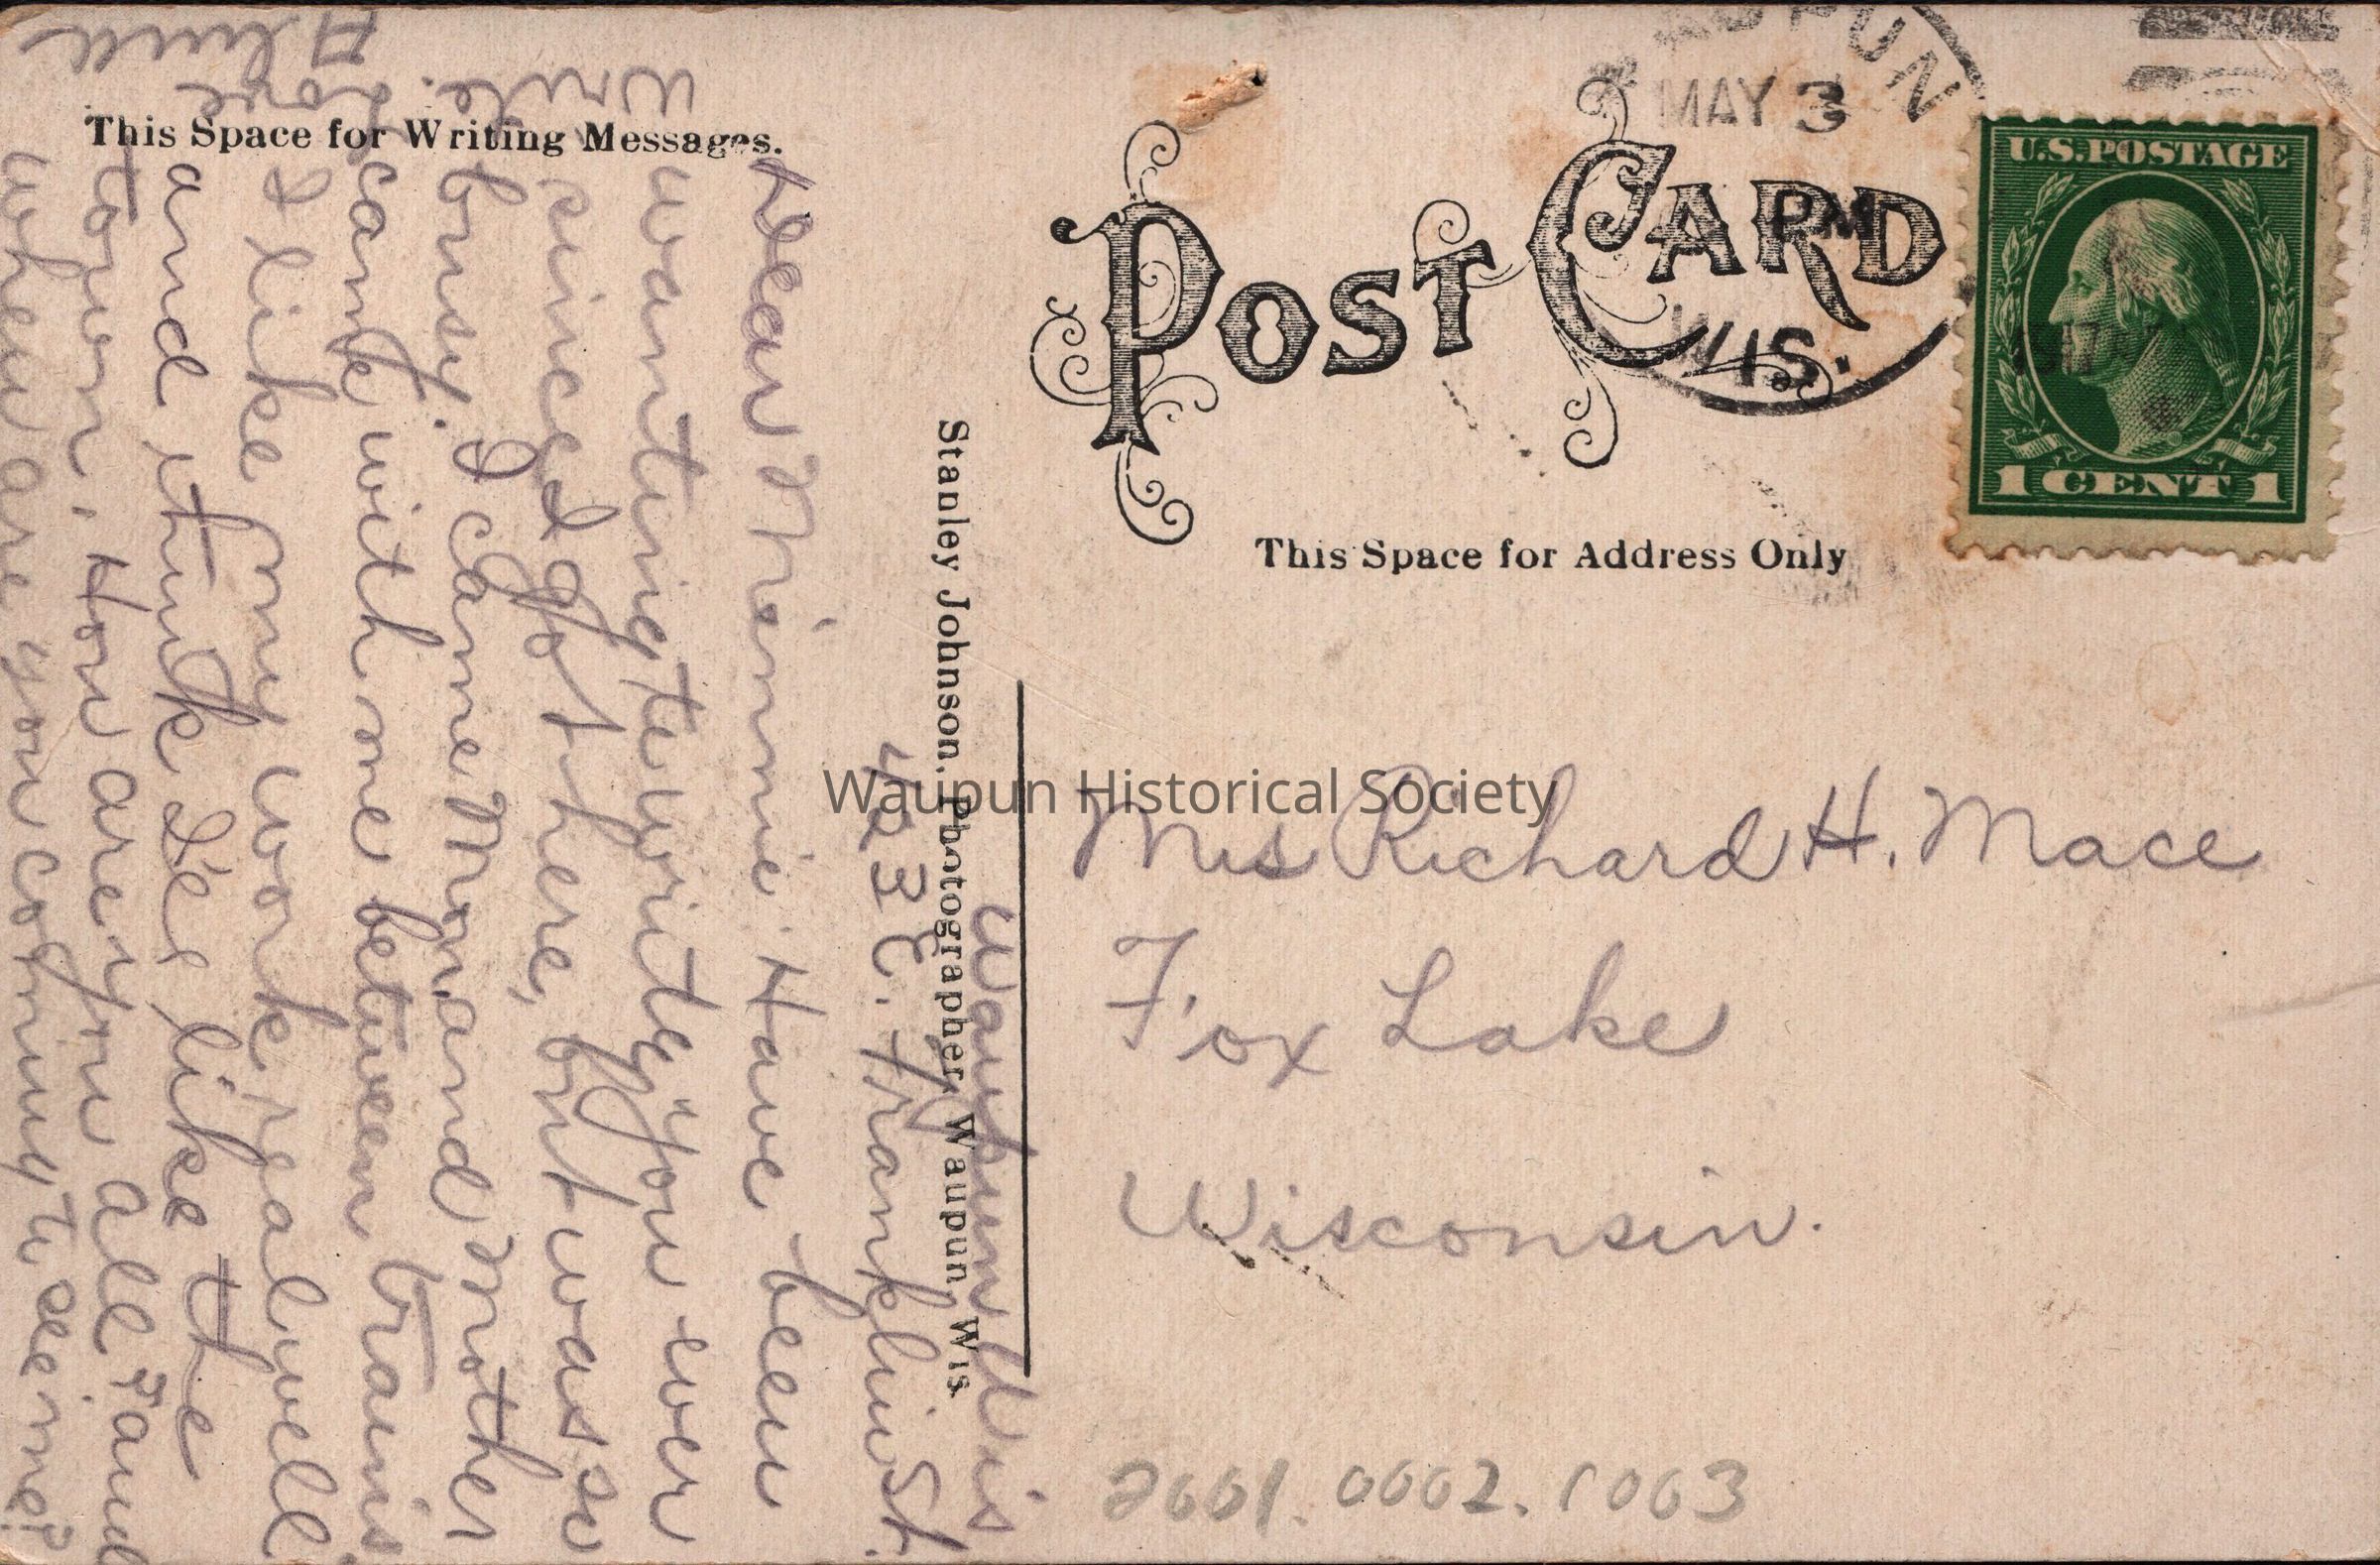 This Space for Writing Messages.
POST CARD
This Space for Address Only
PUN
MAY 3
PM
WIS.
U.S. POSTAGE
1 CENT 1
Stanley Johnson, Photographer, Waupun, Wis.
Waupun Wis
423 E. Franklin St.
Dear Minnie. Have been
wanting to write you ever
since I got here, but was so
busy. I came Mon. and Mother
came with me between trains.
I like my work real well
and think I'll like the
town. How are you all and
when are you coming to see me?
write.
Love
Mrs Richard H. Mace
Fox Lake
Wisconsin.
2001.0002.1003
Waupun Historical Society